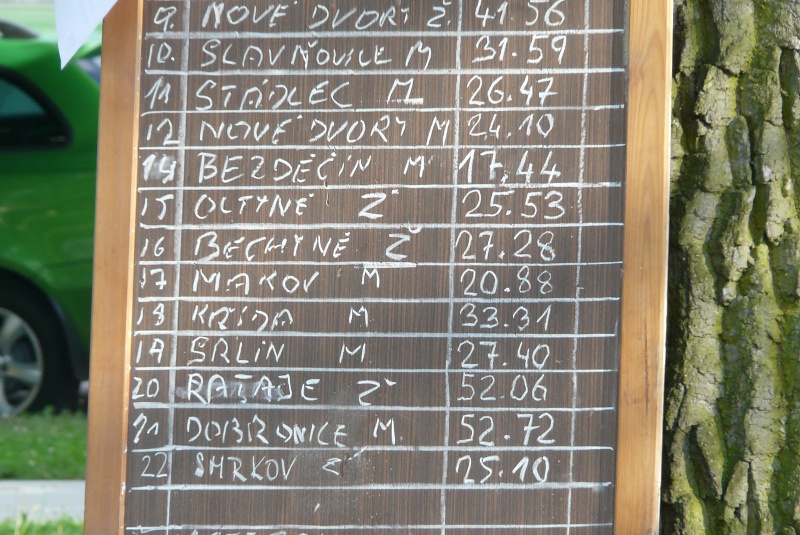 9. NOVÉ DVORY Ž 41.56
10. SLAVŇOVICE M 31.59
11 STÁDLEC M 26.47
12 NOVÉ DVORY M 24.10
14 BEZDĚČÍN M 17.44
15 OLTYNĚ Ž 25.53
16 BECHYNĚ Ž 27.28
17 MAKOV M 20.88
18 M 33.31
19 SRLÍN M 27.40
20 RATAJE Ž 52.06
21 DOBRONICE M 52.72
22 SMRKOV Ž 25.10